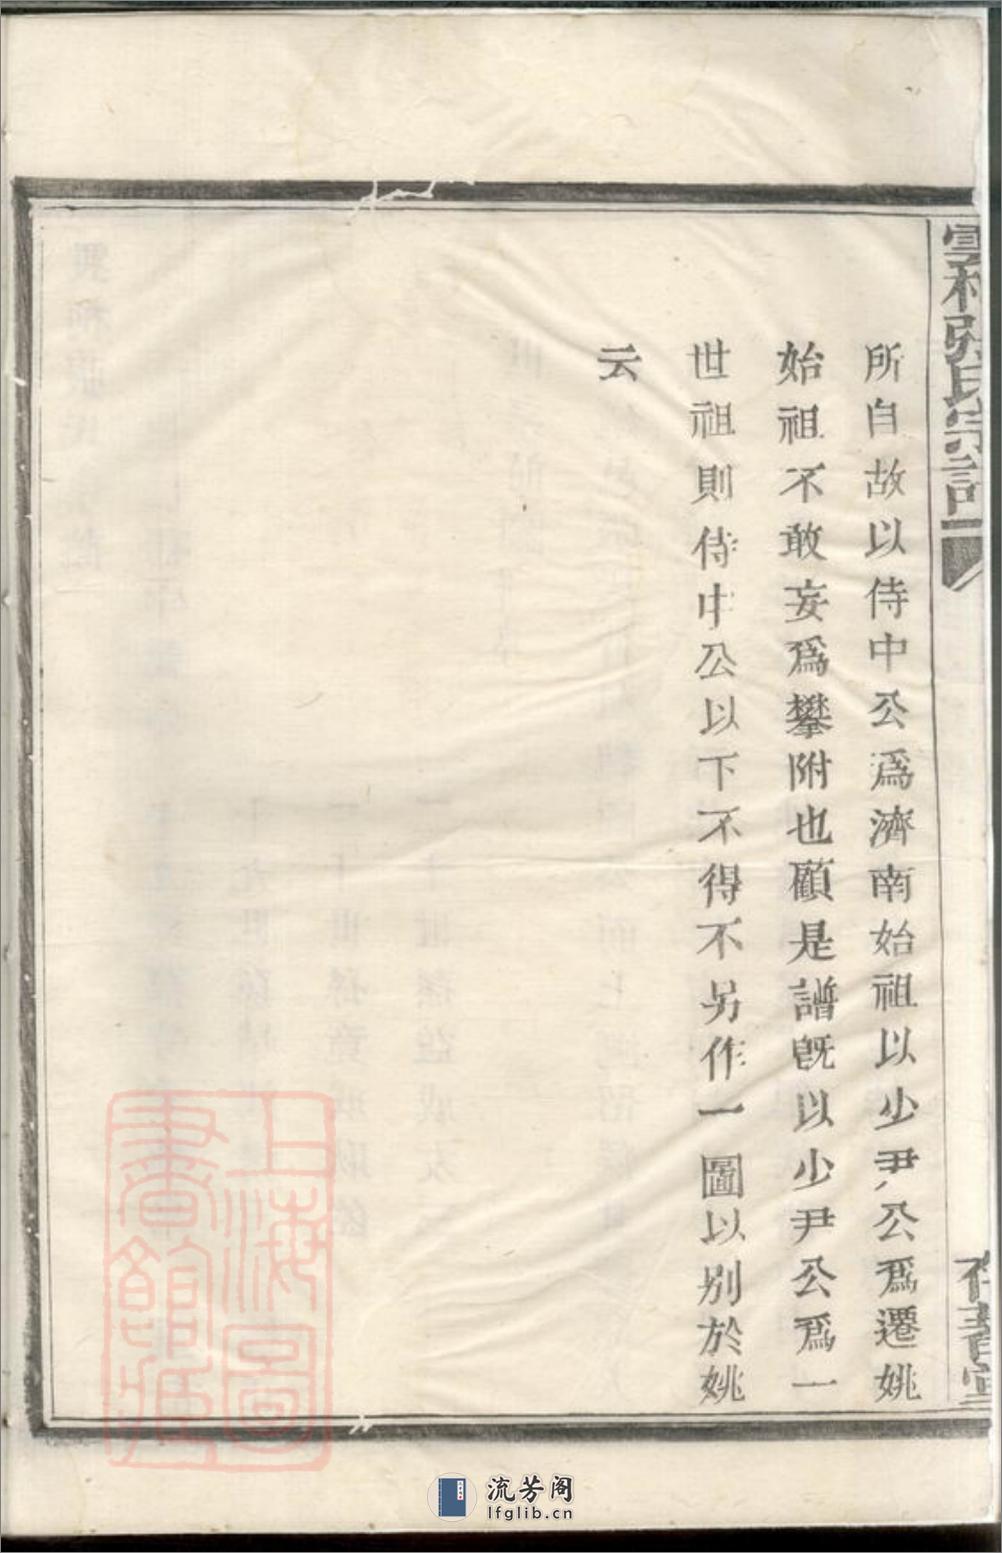 雲村張氏宗譜
所自故以侍中公爲濟南始祖以少尹公爲遷姚
始祖不敢妄爲攀附也顧是譜旣以少尹公爲一
世祖則侍中公以下不得不另作一圖以別於姚
云
上海圖
書館藏
流芳阁
lfglib.cn